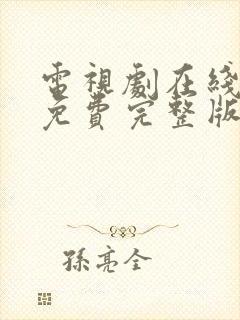 電視劇在綫
免費完整版
孫亮全